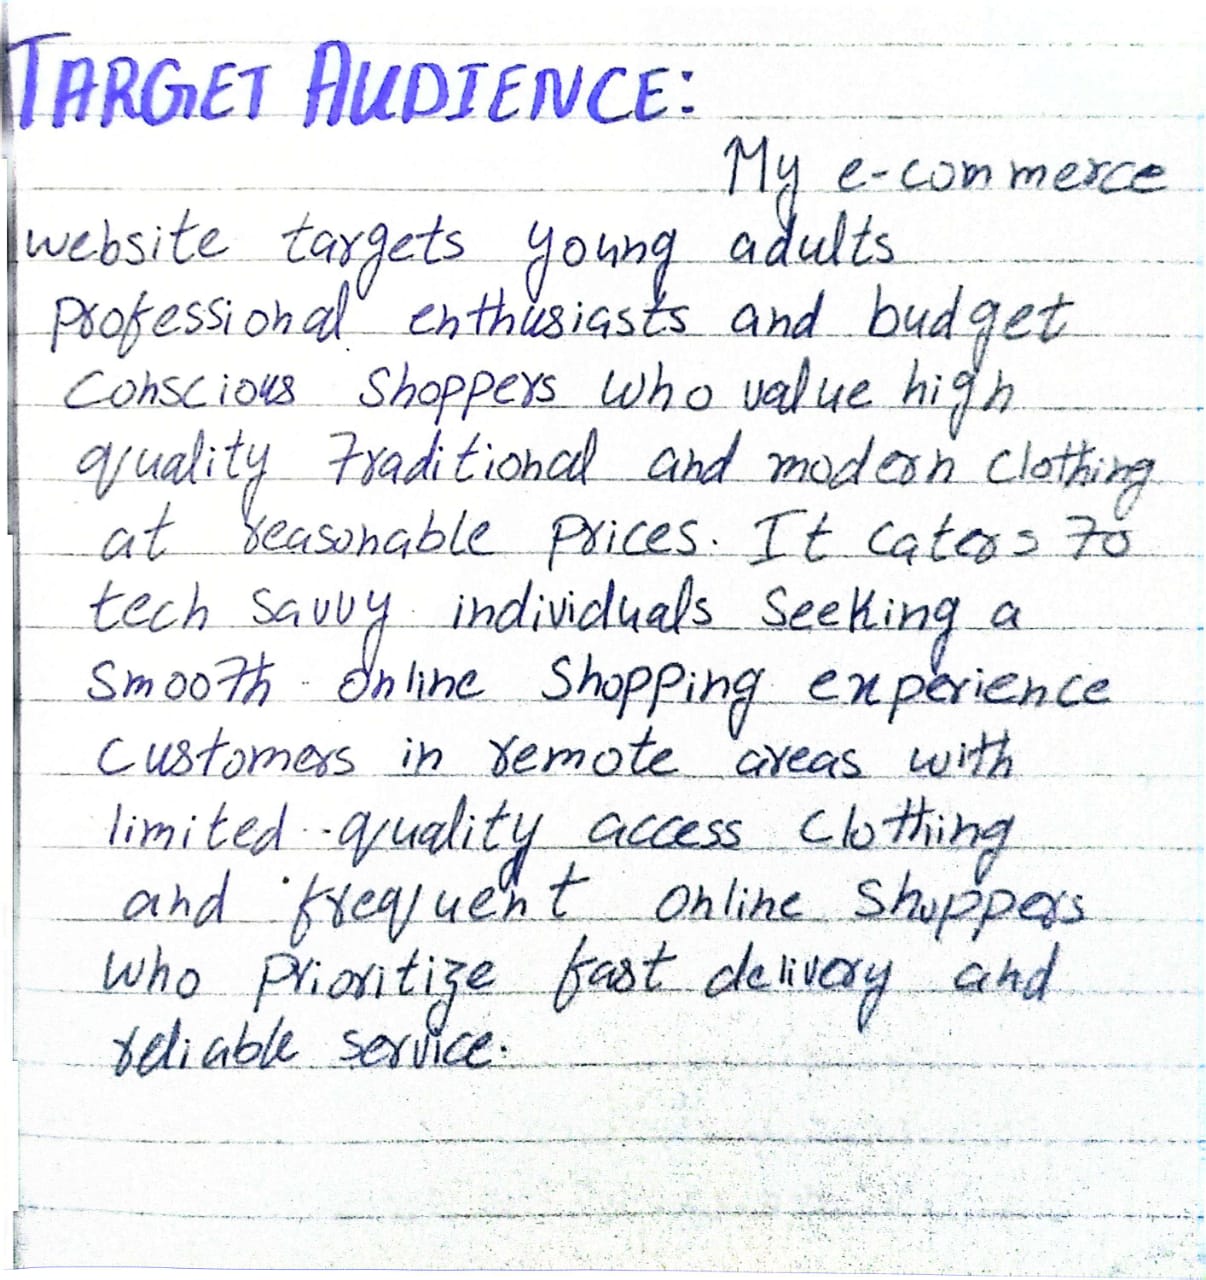 TARGET AUDIENCE:
My e-commerce
website targets young adults
professional enthusiasts and budget
conscious shoppers who value high
quality traditional and modern clothing
at reasonable prices. It caters to
tech savvy individuals seeking a
smooth online shopping experience
customers in remote areas with
limited quality access clothing
and frequent online shoppers
who prioritize fast delivery and
reliable service.